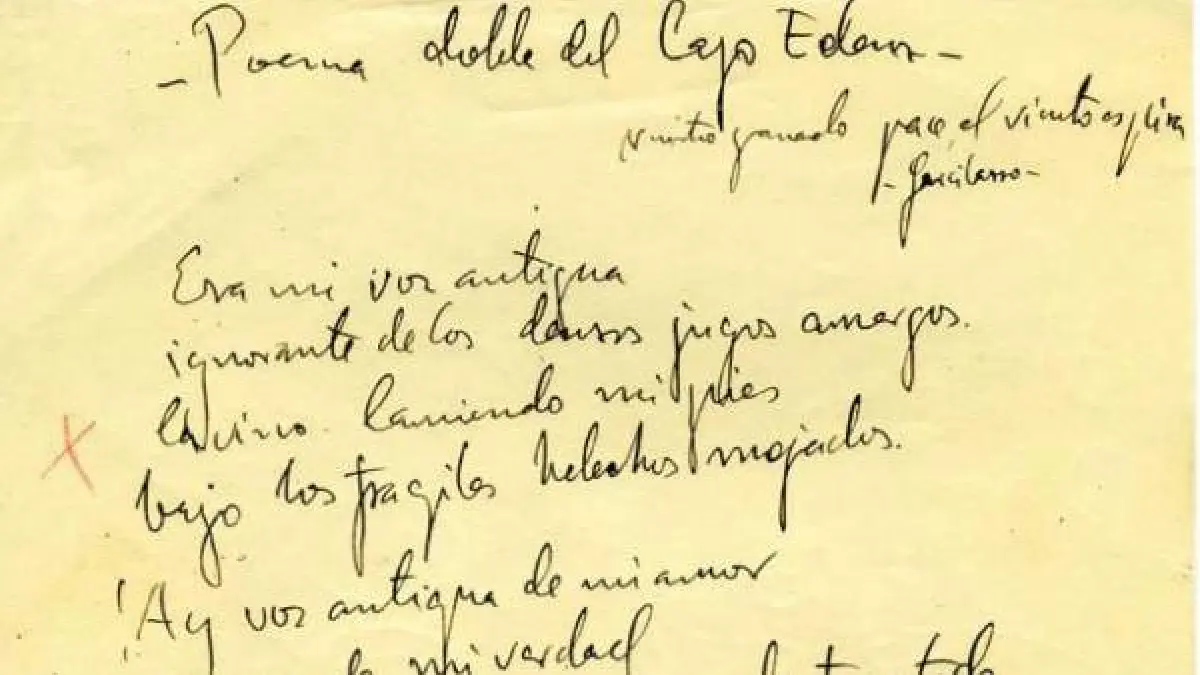 - Poema doble del Lago Edem -
Nuestro ganado pace, el viento espira
- Garcilasso -
Era mi voz antigua
ignorante de los densos jugos amargos.
lamiendo mis pies
bajo los fragiles helechos mojados.
¡Ay voz antigua de mi amor
de mi verdad